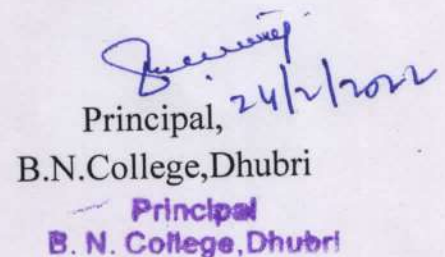 24/2/2022
Principal,
B.N.College,Dhubri
Principal
B. N. College,Dhubri